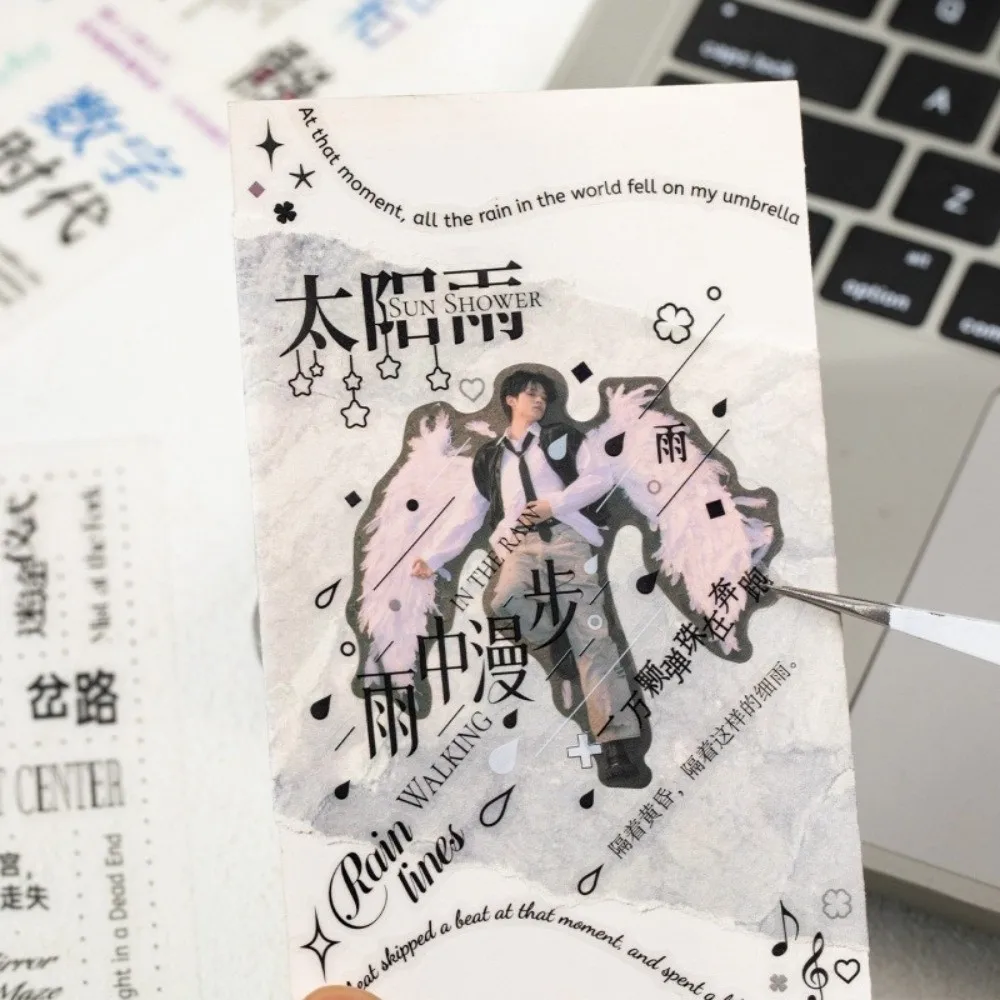 At that moment, all the rain in the world fell on my umbrella
太阳雨
SUN SHOWER
雨
IN THE RAIN
雨中漫步
WALKING
二万颗弹珠在奔跑
隔着黄昏，隔着这样的细雨。
Rain
lines
eat skipped a beat at that moment, and spent a
数字
时代
迷踪
Mist at the Fork
岔路
CENTER
宫，
走失
ght in a Dead End
irror
Maze
caps lock
A
Z
alt
option